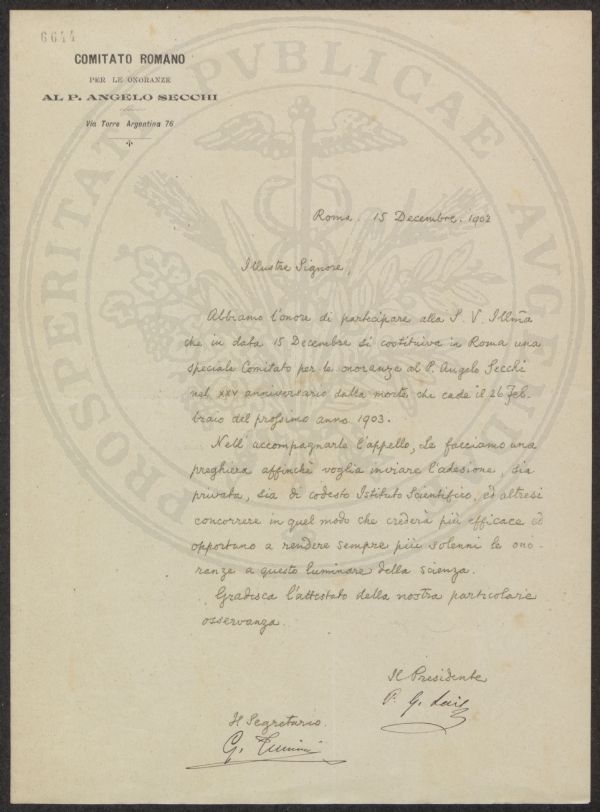 6644
COMITATO ROMANO
PER LE ONORANZE
AL P. ANGELO SECCHI
Via Torre Argentina 76
PROSPERITATI PVBLICAE AVGENDAE
Roma. 15 Decembre. 1902
Illustre Signore,
Abbiamo l'onore di partecipare alla S. V. Illm̃a
che in data 15 Decembre si costituiva in Roma uno
speciale Comitato per le onoranze al P. Angelo Secchi
nel XXV anniversario dalla morte, che cade il 26 Feb.
braio del prossimo anno 1903.
Nell' accompagnarle l'appello, Le facciamo una
preghiera affinchè voglia inviare l'adesione, sia
privata, sia di codesto Istituto Scientifico, ed altresì
concorrere in quel modo che crederà più efficace ed
opportuno a rendere sempre più solenni le ono-
ranze a questo luminare della scienza.
Gradisca l'attestato della nostra particolare
osservanza.
Il Presidente
P. G. Lais
Il Segretario.
G.